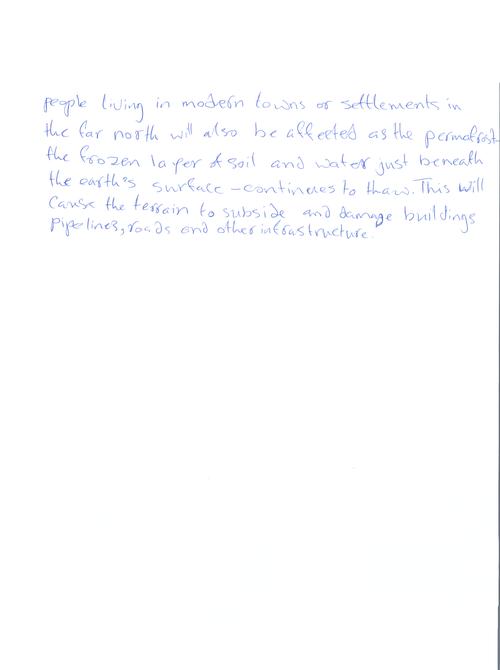 people living in modern towns or settlements in
the far north will also be affected as the permafrost
the frozen layer of soil and water just beneath
the earth's surface - continues to thaw. This will
cause the terrain to subside and damage buildings
pipelines, roads and other infrastructure.